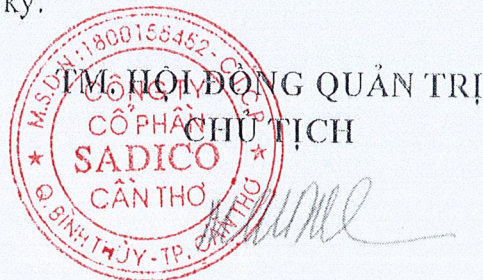 ký.
TM. HỘI ĐỒNG QUẢN TRỊ
CHỦ TỊCH
M.S.D.N: 1800158452 - C.T.C.P
CÔNG TY
CỔ PHẦN
SADICO
CẦN THƠ
Q. BÌNH THỦY - TP. CẦN THƠ